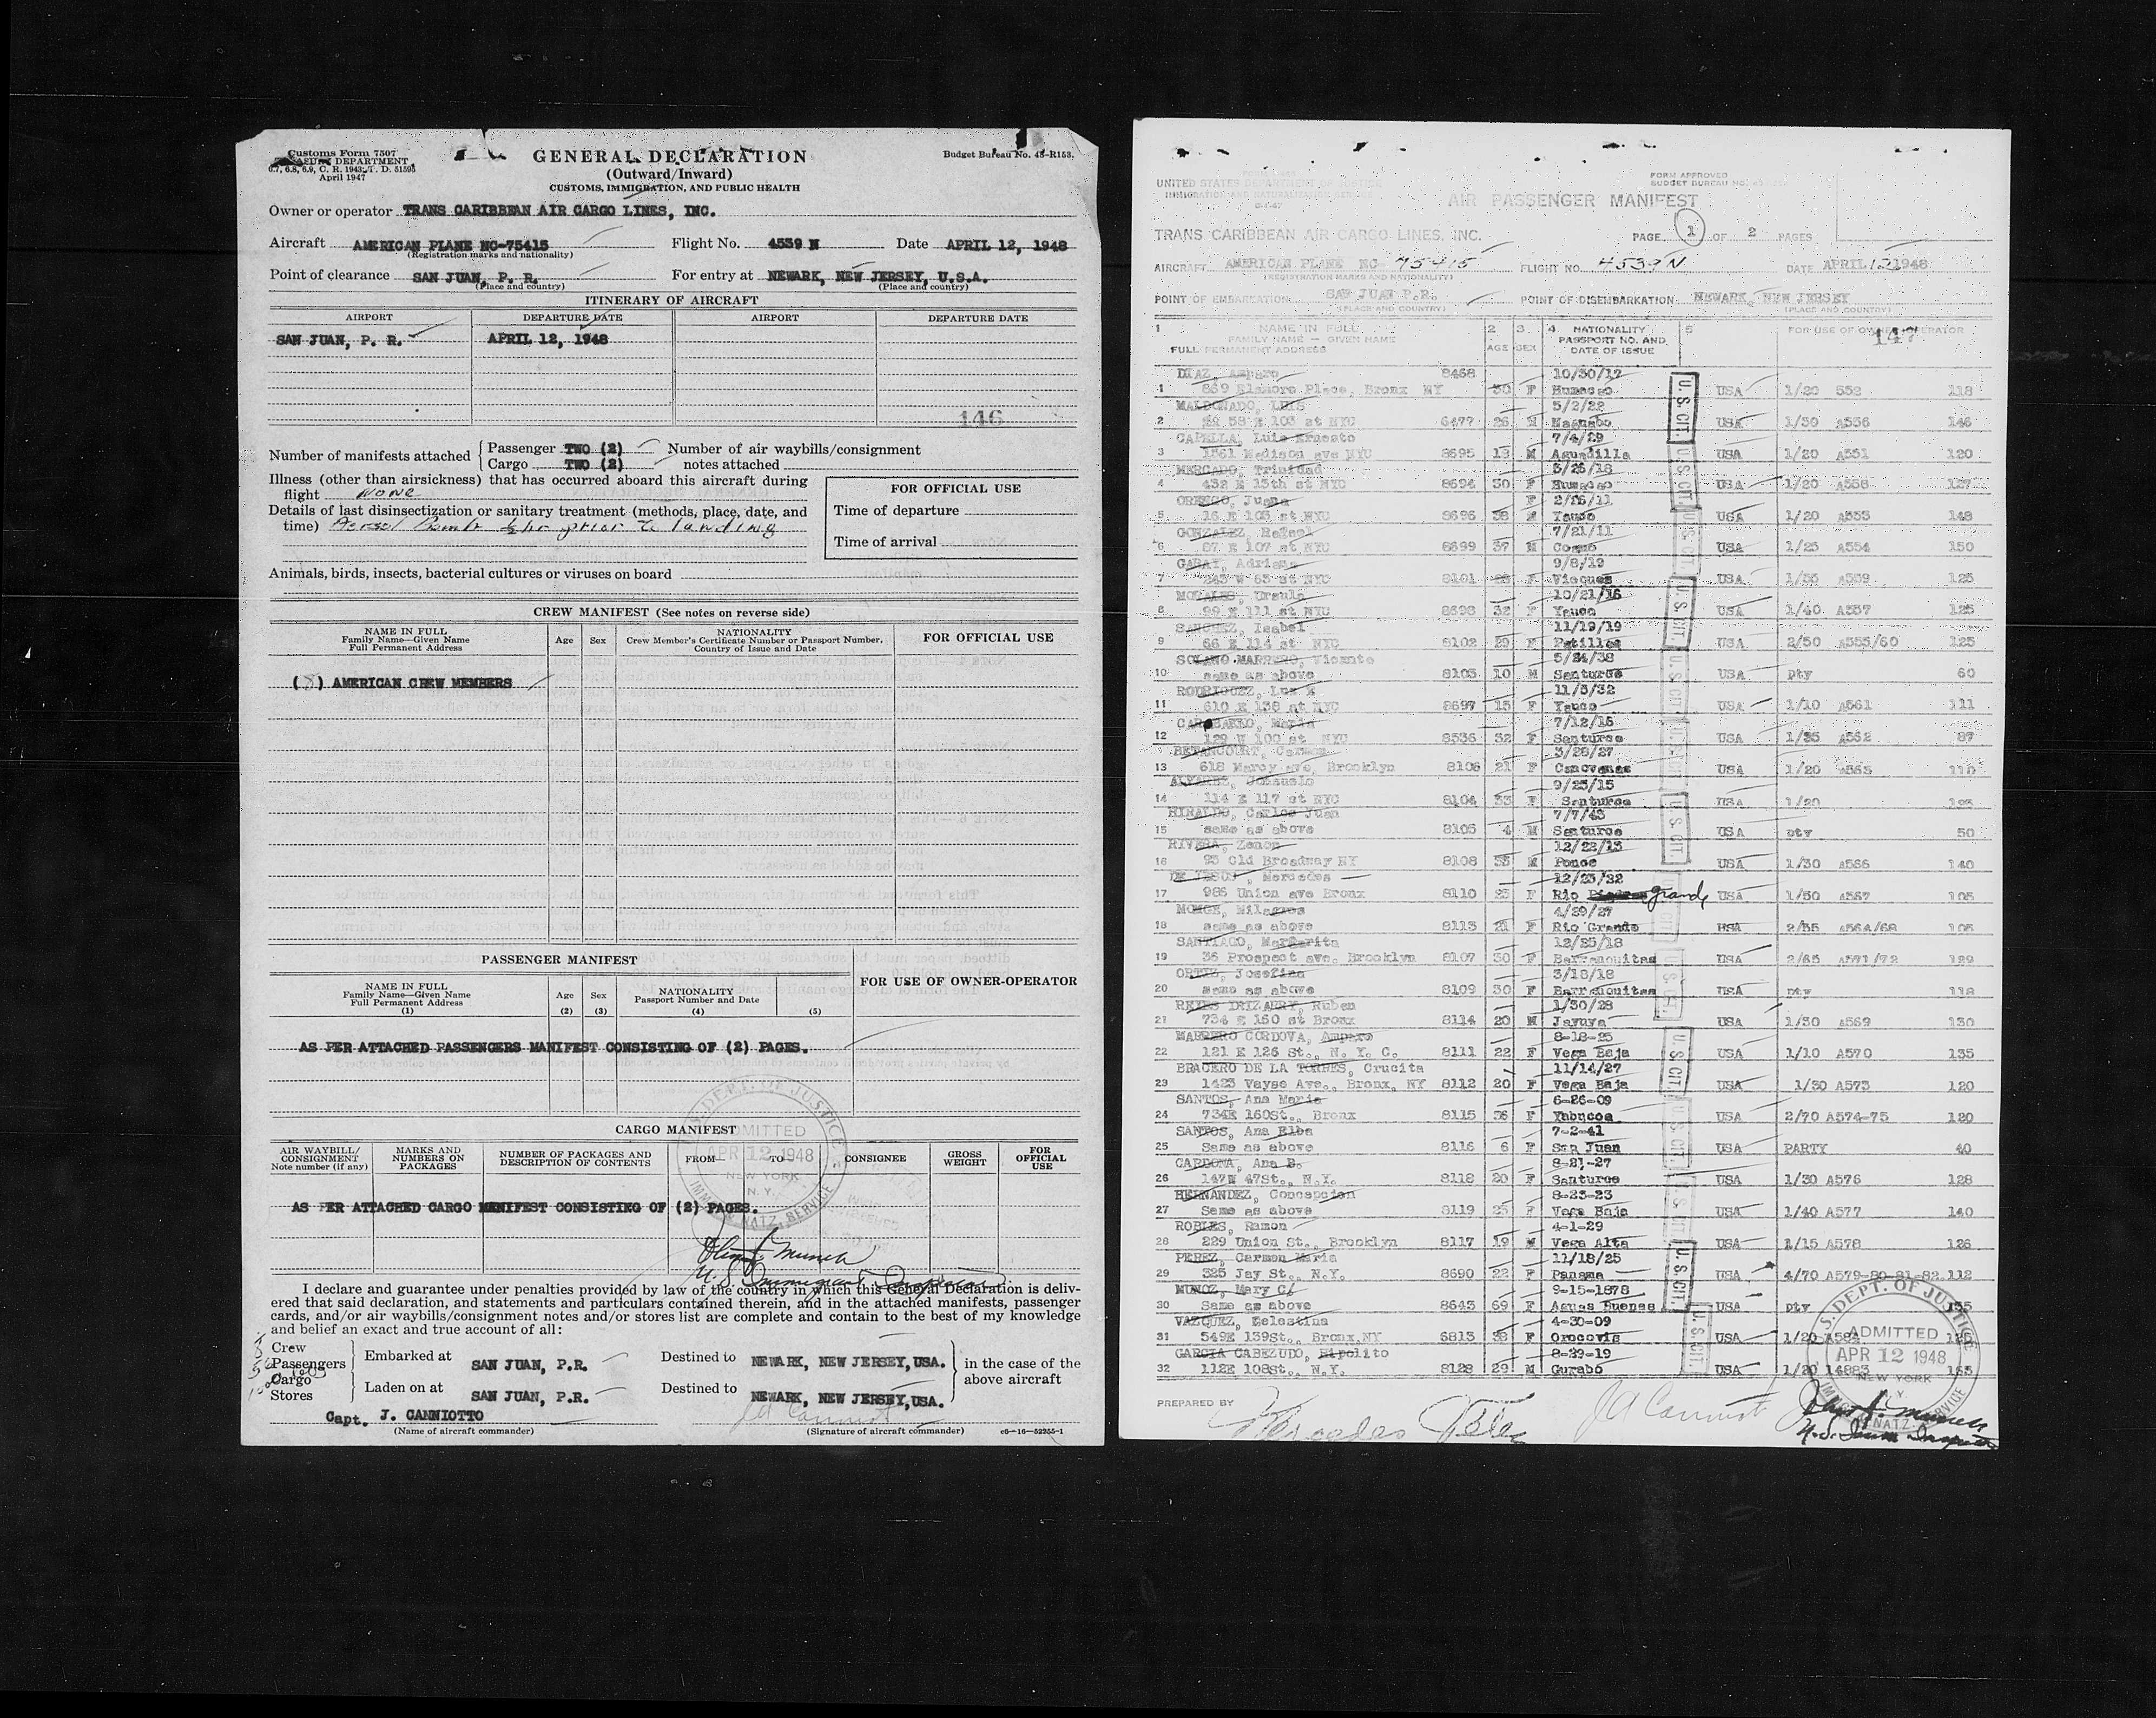 Customs Form 7507
TREASURY DEPARTMENT
6.7, 6.8, 6.9, C. R. 1943; T. D. 51595
April 1947
GENERAL DECLARATION
(Outward/Inward)
CUSTOMS, IMMIGRATION, AND PUBLIC HEALTH
Budget Bureau No. 48-R153.
Owner or operator TRANS CARIBBEAN AIR CARGO LINES, INC.
Aircraft AMERICAN PLANE NC-75415 Flight No. 4539 N Date APRIL 12, 1948
(Registration marks and nationality)
Point of clearance SAN JUAN, P. R. For entry at NEWARK, NEW JERSEY, U.S.A.
(Place and country) (Place and country)
ITINERARY OF AIRCRAFT
AIRPORT DEPARTURE DATE AIRPORT DEPARTURE DATE
SAN JUAN, P. R. APRIL 12, 1948
146
Number of manifests attached Passenger TWO (2) Number of air waybills/consignment
Cargo TWO (2) notes attached
Illness (other than airsickness) that has occurred aboard this aircraft during
flight None
Details of last disinsectization or sanitary treatment (methods, place, date, and
time) Aerosol Bomb ½ hr prior to landing
FOR OFFICIAL USE
Time of departure
Time of arrival
Animals, birds, insects, bacterial cultures or viruses on board
CREW MANIFEST (See notes on reverse side)
NAME IN FULL
Family Name—Given Name
Full Permanent Address
Age Sex
NATIONALITY
Crew Member's Certificate Number or Passport Number,
Country of Issue and Date
FOR OFFICIAL USE
AMERICAN CREW MEMBERS
PASSENGER MANIFEST
NAME IN FULL
Family Name—Given Name
Full Permanent Address
(1)
Age
(2)
Sex
(3)
NATIONALITY
Passport Number and Date
(4) (5)
FOR USE OF OWNER-OPERATOR
AS PER ATTACHED PASSENGERS MANIFEST CONSISTING OF (2) PAGES.
CARGO MANIFEST
AIR WAYBILL/
CONSIGNMENT
Note number (if any)
MARKS AND
NUMBERS ON
PACKAGES
NUMBER OF PACKAGES AND
DESCRIPTION OF CONTENTS
FROM— TO— CONSIGNEE
GROSS
WEIGHT
FOR
OFFICIAL
USE
DEPT. OF JUSTICE
ADMITTED
APR 12 1948
NEW YORK
N. Y.
IMM. & NATZ. SERVICE
AS PER ATTACHED CARGO MANIFEST CONSISTING OF (2) PAGES.
U.S. Immigrant Inspector
I declare and guarantee under penalties provided by law of the country in which this General Declaration is deliv-
ered that said declaration, and statements and particulars contained therein, and in the attached manifests, passenger
cards, and/or air waybills/consignment notes and/or stores list are complete and contain to the best of my knowledge
and belief an exact and true account of all:
Crew
Passengers
Cargo
Stores
Embarked at SAN JUAN, P.R. Destined to NEWARK, NEW JERSEY, USA.
Laden on at SAN JUAN, P.R. Destined to NEWARK, NEW JERSEY, USA.
in the case of the
above aircraft
Capt. J. CANNIOTTO
(Name of aircraft commander) (Signature of aircraft commander) c6—16—52255-1
UNITED STATES DEPARTMENT OF JUSTICE
IMMIGRATION AND NATURALIZATION SERVICE
FORM APPROVED
BUDGET BUREAU NO.
AIR PASSENGER MANIFEST
TRANS CARIBBEAN AIR CARGO LINES, INC. PAGE 1 OF 2 PAGES
AIRCRAFT AMERICAN PLANE NC 75415 FLIGHT NO. 4539N DATE APRIL 12 1948
(REGISTRATION MARKS AND NATIONALITY)
POINT OF EMBARCATION SAN JUAN P.R. POINT OF DISEMBARKATION NEWARK, NEW JERSEY
(PLACE AND COUNTRY) (PLACE AND COUNTRY)
1 NAME IN FULL
FAMILY NAME — GIVEN NAME
FULL PERMANENT ADDRESS
2 AGE 3 SEX
4 NATIONALITY
PASSPORT NO. AND
DATE OF ISSUE
5 FOR USE OF OWNER-OPERATOR
147
DIAZ, Amparo 8468 10/30/17
1 869 Elsmore Place, Bronx NY 30 F Humacao USA 1/20 552 118
MALDONADO, LUIS 5/2/22
2 58 E 103 st NYC 6477 26 M Naguabo USA 1/30 A556 146
CAPELLA, Luis Ernesto 7/4/29
3 1561 Madison ave NYC 8695 18 M Aguadilla USA 1/20 A551 120
MERCADO, Trinidad 3/25/18
4 432 E 15th st NYC 8694 30 F Humacao USA 1/20 A558 127
ORENGO, Juana
5 16 E 103 st NYC 8696 38 M Yauco USA 1/20 A553 148
GONZALEZ, Rafael 7/21/11
6 87 E 107 st NYC 8699 37 M Coamo USA 1/25 A554 150
GARAY, Adriana 9/8/19
7 243 W 63 st NYC 8101 F Vieques USA 1/35 A559 125
MORALES, Ursula 10/21/16
8 99 E 111 st NYC 8698 32 F Yauco USA 1/40 A557 125
SANCHEZ, Isabel 11/19/19
9 66 E 114 st NYC 8102 29 F Patillas USA 2/50 A555/60 125
SOLANO MARRERO, Vicente 5/24/38
10 same as above 8103 10 M Santurce USA pty 60
RODRIGUEZ, Luz E 11/5/32
11 610 E 138 st NYC 8697 15 F Yauco USA 1/10 A561 111
CARABARRO, Maria 7/12/15
12 129 W 100 st NYC 8536 32 F Santurce USA 1/35 A562 87
BETANCOURT, Carmen 3/28/27
13 618 Marcy ave, Brooklyn 8106 21 F Canovanas USA 1/20 A563 110
ALVAREZ, Consuelo 9/25/15
14 114 E 117 st NYC 8104 33 F Santurce USA 1/20
HIRALDO, Carlos Juan 7/7/43
15 same as above 8105 4 M Santurce USA pty 50
RIVERA, Zenon 12/22/13
16 93 Old Broadway NY 8108 35 M Ponce USA 1/30 A566 140
DE JESUS, Mercedes 12/23/22
17 986 Union ave Bronx 8110 25 F Rio grande USA 1/50 A567 105
MONGE, Milagros 4/29/27
18 same as above 8113 21 F Rio Grande USA 2/55 A564/68 105
SANTIAGO, Margarita 12/25/18
19 36 Prospect ave, Brooklyn 8107 30 F Barranquitas USA 2/65 A571/72 129
ORTIZ, Josefina 3/18/18
20 same as above 8109 30 F Barranquitas USA pty 118
REYES IRIZARRY, Ruben 1/30/28
21 734 E 160 st Bronx 8114 20 M Jayuya USA 1/30 A569 130
MARRERO CORDOVA, Amparo 8-18-25
22 121 E 126 St., N. Y. C. 8111 22 F Vega Baja USA 1/10 A570 135
BRACERO DE LA TORRES, Crucita 11/14/27
23 1423 Vayse Ave., Bronx, NY 8112 20 F Vega Baja USA 1/30 A573 120
SANTOS, Ana Maria 6-26-09
24 734E 160St., Bronx 8115 36 F Yabucoa USA 2/70 A574-75 120
SANTOS, Ana Elba 7-2-41
25 Same as above 8116 6 F San Juan USA PARTY 40
CARDONA, Ana B. 8-21-27
26 147W 47St., N.Y. 8118 20 F Santurce USA 1/30 A576 128
HERNANDEZ, Concepcion 8-23-23
27 Same as above 8119 25 F Vega Baja USA 1/40 A577 140
ROBLES, Ramon 4-1-29
28 229 Union St., Brooklyn 8117 19 M Vega Alta USA 1/15 A578 126
PEREZ, Carmen Maria 11/18/25
29 325 Jay St., N.Y. 8690 22 F Panama USA 4/70 A579-80-81-82 112
MUNOZ, Mary C/ 9-15-1878
30 Same as above 8643 69 F Aguas Buenas USA pty 135
VAZQUEZ, Celestina 4-30-09
31 549E 139St., Bronx,NY 6813 38 F Orocovis USA 1/20
GARCIA CABEZUDO, Hipolito 8-29-19
32 112E 108St., N.Y. 8128 29 M Gurabo USA 1/20 14883 165
U.S. CIT.
U.S. CIT.
U.S. CIT.
U.S. CIT.
U.S. CIT.
U.S. CIT.
U.S. CIT.
U.S. CIT.
U.S. CIT.
U.S. CIT.
U.S. CIT.
U.S. CIT.
U.S. DEPT. OF JUSTICE
ADMITTED
APR 12 1948
NEW YORK
N.Y.
IMM. & NATZ. SERVICE
PREPARED BY Mercedes
U.S. Imm Inspector